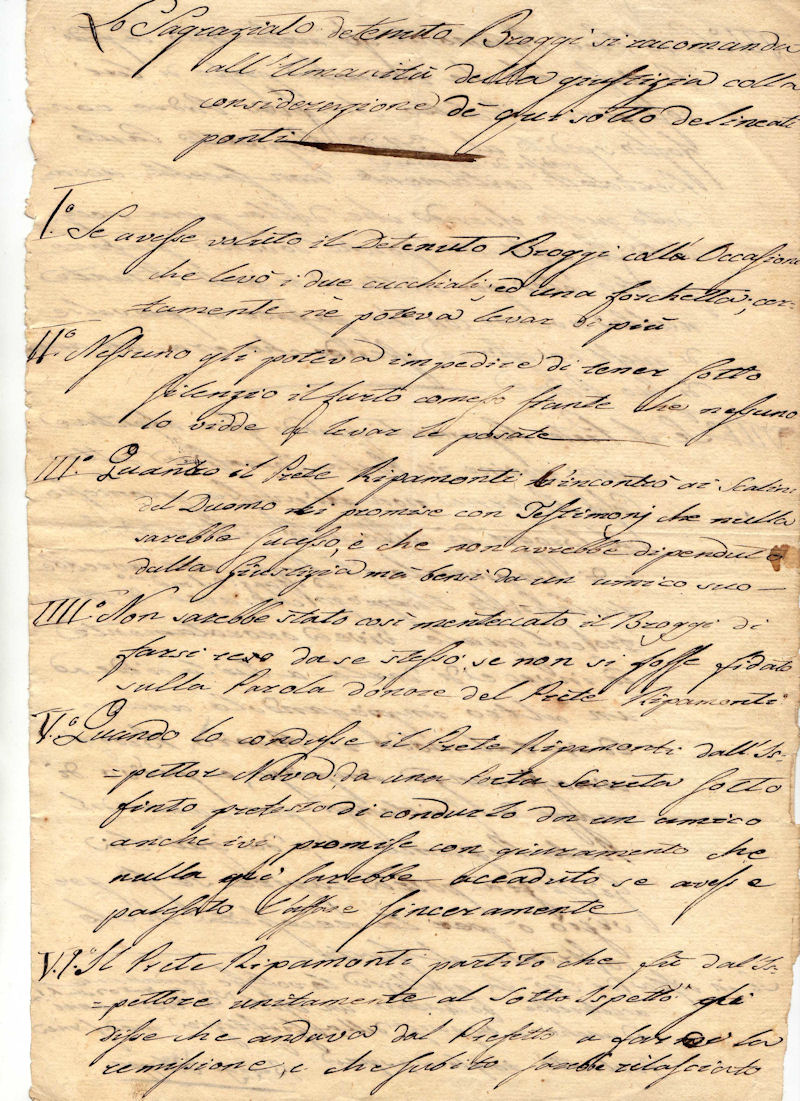 Lo Sgraziato detenuto Broggi si racomanda
all'Umanità della giustizia colla
considerazione de qui sotto delineati
ponti
I.° Se avesse voluto il Detenuto Broggi colla Occasione
che levò i due cucchiali, ed una forchetta, cer-
tamente ne poteva levar di più
II.° Nessuno gli poteva impedire di tener sotto
silenzio il furto comesso stante che nessuno
lo vidde a levar le posate
III.° Quando il Prete Ripamonti l'incontrò ai Scalini
del Duomo li promise con Testimonj che nulla
sarebbe sucesso, è che non avrebbe dipenduto
dalla Giustizia mà bensi da un amico suo
IIII.° Non sarebbe stato così mentecato il Broggi di
farsi reso da se stesso, se non si fosse fidato
sulla Parola d'onore del Prete Ripamonti
V.° Quando lo condusse il Prete Ripamonti dall'Is-
=pettor Nava, da una Porta Secreta sotto
finto pretesto di condurlo da un amico
anche ivi promise con giuramento che
nulla gli sarebbe accaduto se avesse
palesato l'affare sinceramente
V.I.° Il Prete Ripamonti partito che fù dal'Is-
=pettore unitamente al Sotto Ispetto.e gli
disse che andava dal Prefetto a farne la
remissione, e che subito sarebbe rilasciato